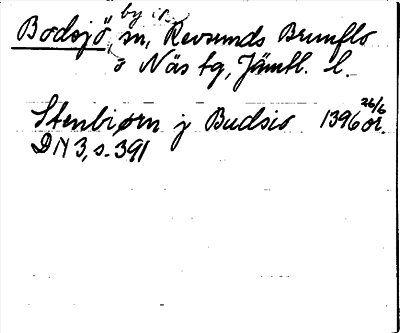 Bodsjö, by i sn, Revsunds Brunflo
o Näs tg, Jämtl. l.
Stenbiørn j Budsio 1396 26/6 or.
DN 3, s. 391